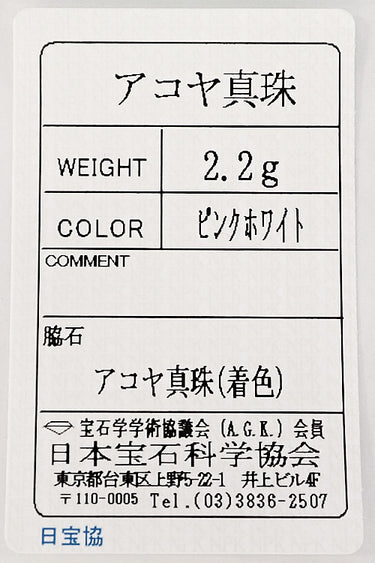 アコヤ真珠
WEIGHT 2.2g
COLOR ピンクホワイト
COMMENT
脇石
アコヤ真珠(着色)
宝石学学術協議会 (A.G.K.) 会員
日本宝石科学協会
東京都台東区上野5-22-1 井上ビル4F
〒110-0005 Tel.(03)3836-2507
日宝協